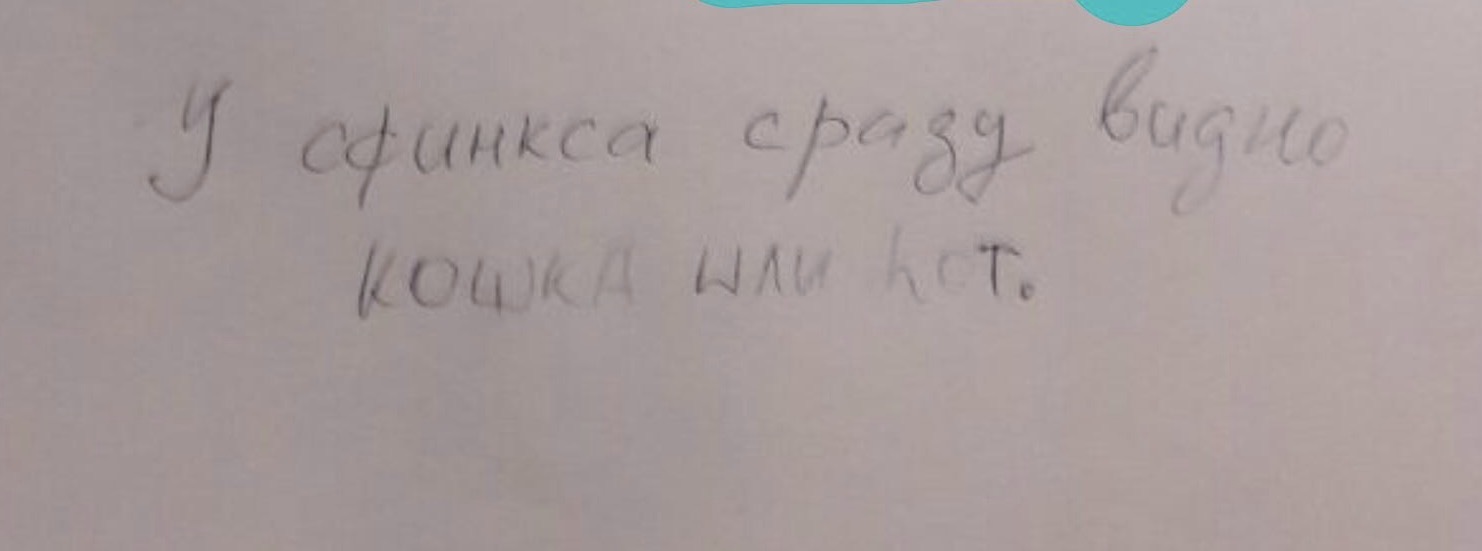 У сфинкса сразу видно
кошка или нет.